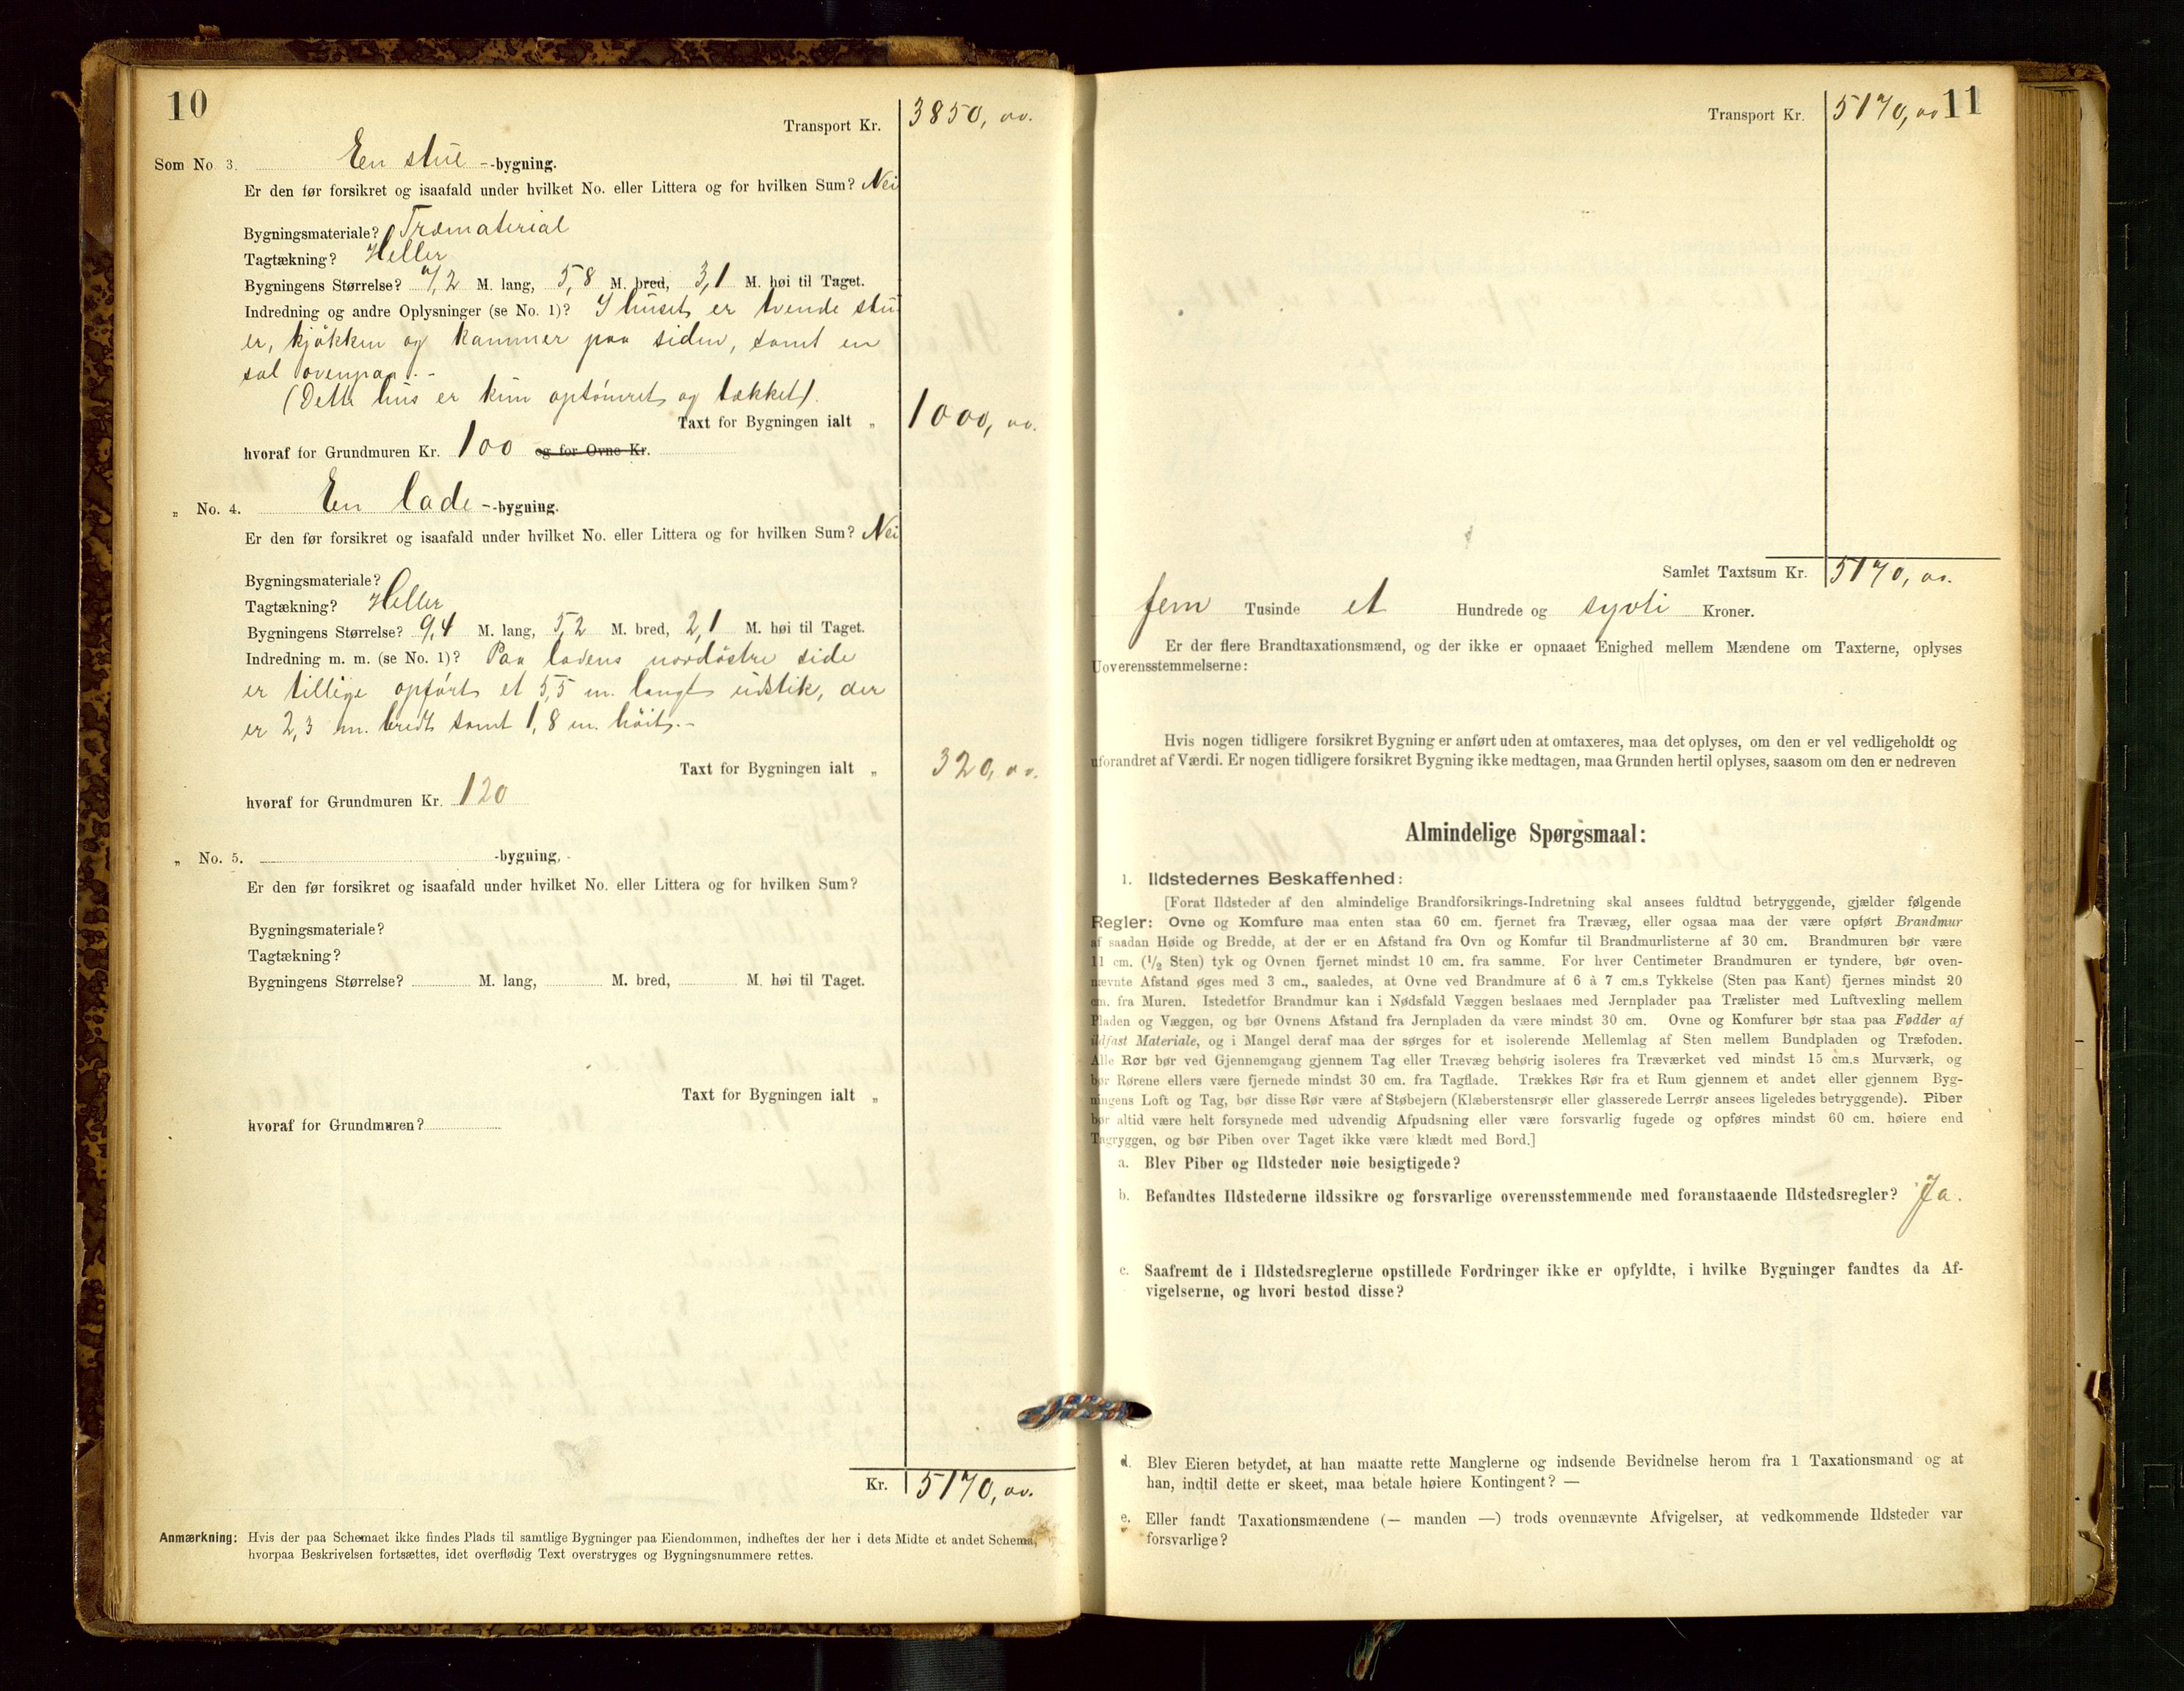 10
Transport Kr. 3850, 00.
Som No. 3. En stue -bygning.
Er den før forsikret og isaafald under hvilket No. eller Littera og for hvilken Sum? Nei
Bygningsmateriale? Træmaterial
Tagtækning? Heller
Bygningens Størrelse? 7,2 M. lang, 5,8 M. bred, 3,1 M. høi til Taget.
Indredning og andre Oplysninger (se No. 1)? I huset er tvende stu
er, kjøkken og kammer paa siden, samt en
sal ovenpaa. -
(Dette hus er kun optømret og tækket).
Taxt for Bygningen ialt „ 1000, 00.
hvoraf for Grundmuren Kr. 100 og for Ovne Kr.
„ No. 4. En lade -bygning.
Er den før forsikret og isaafald under hvilket No. eller Littera og for hvilken Sum? Nei
Bygningsmateriale?
Tagtækning? Heller
Bygningens Størrelse? 9,4 M. lang, 5,2 M. bred, 2,1 M. høi til Taget.
Indredning m. m. (se No. 1)? Paa ladens nordøstre side
er tillige opført et 5,5 m. langt udstik, der
er 2,3 m. bredt samt 1,8 m. høit. -
Taxt for Bygningen ialt „ 320, 00.
hvoraf for Grundmuren Kr. 120
„ No. 5. -bygning.
Er den før forsikret og isaafald under hvilket No. eller Littera og for hvilken Sum?
Bygningsmateriale?
Tagtækning?
Bygningens Størrelse? M. lang, M. bred, M. høi til Taget.
Taxt for Bygningen ialt „
hvoraf for Grundmuren?
Kr. 5170, 00.
Anmærkning: Hvis der paa Schemaet ikke findes Plads til samtlige Bygninger paa Eiendommen, indheftes der her i dets Midte et andet Schema,
hvorpaa Beskrivelsen fortsættes, idet overflødig Text overstryges og Bygningsnummere rettes.
11
Transport Kr. 5170, 00
Samlet Taxtsum Kr. 5170, 00.
fem Tusinde et Hundrede og sytti Kroner.
Er der flere Brandtaxationsmænd, og der ikke er opnaaet Enighed mellem Mændene om Taxterne, oplyses
Uoverensstemmelserne:
Hvis nogen tidligere forsikret Bygning er anført uden at omtaxeres, maa det oplyses, om den er vel vedligeholdt og
uforandret af Værdi. Er nogen tidligere forsikret Bygning ikke medtagen, maa Grunden hertil oplyses, saasom om den er nedreven
Almindelige Spørgsmaal:
1. Ildstedernes Beskaffenhed:
[Forat Ildsteder af den almindelige Brandforsikrings-Indretning skal ansees fuldtud betryggende, gjælder følgende
Regler: Ovne og Komfure maa enten staa 60 cm. fjernet fra Trævæg, eller ogsaa maa der være opført Brandmur
af saadan Høide og Bredde, at der er en Afstand fra Ovn og Komfur til Brandmurlisterne af 30 cm. Brandmuren bør være
11 cm. (1/2 Sten) tyk og Ovnen fjernet mindst 10 cm. fra samme. For hver Centimeter Brandmuren er tyndere, bør oven-
nævnte Afstand øges med 3 cm., saaledes, at Ovne ved Brandmure af 6 à 7 cm.s Tykkelse (Sten paa Kant) fjernes mindst 20
cm. fra Muren. Istedetfor Brandmur kan i Nødsfald Væggen beslaaes med Jernplader paa Trælister med Luftvexling mellem
Pladen og Væggen, og bør Ovnens Afstand fra Jernpladen da være mindst 30 cm. Ovne og Komfurer bør staa paa Fødder af
ildfast Materiale, og i Mangel deraf maa der sørges for et isolerende Mellemlag af Sten mellem Bundpladen og Træfoden.
Alle Rør bør ved Gjennemgang gjennem Tag eller Trævæg behørig isoleres fra Træværket ved mindst 15 cm.s Murværk, og
bør Rørene ellers være fjernede mindst 30 cm. fra Tagflade. Trækkes Rør fra et Rum gjennem et andet eller gjennem Byg-
ningens Loft og Tag, bør disse Rør være af Støbejern (Klæberstensrør eller glasserede Lerrør ansees ligeledes betryggende). Piber
bør altid være helt forsynede med udvendig Afpudsning eller være forsvarlig fugede og opføres mindst 60 cm. høiere end
Tagryggen, og bør Piben over Taget ikke være klædt med Bord.]
a. Blev Piber og Ildsteder nøie besigtigede?
b. Befandtes Ildstederne ildssikre og forsvarlige overensstemmende med foranstaaende Ildstedsregler? Ja.
c. Saafremt de i Ildstedsreglerne opstillede Fordringer ikke er opfyldte, i hvilke Bygninger fandtes da Af-
vigelserne, og hvori bestod disse?
d. Blev Eieren betydet, at han maatte rette Manglerne og indsende Bevidnelse herom fra 1 Taxationsmand og at
han, indtil dette er skeet, maa betale høiere Kontingent? —
e. Eller fandt Taxationsmændene (— manden —) trods ovennævnte Afvigelser, at vedkommende Ildsteder var
forsvarlige?